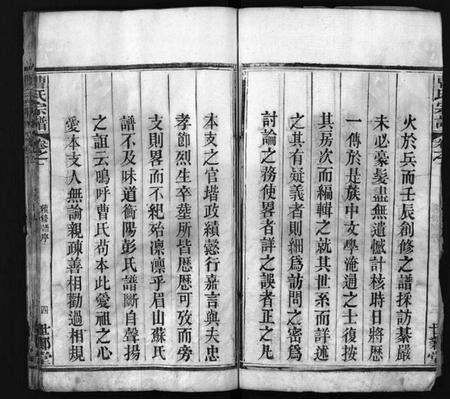 火於兵而壬辰創修之譜採訪綦嚴
未必豪髮盡無遺憾計核時日將歷
一傳於是族中文學淹通之士復按
其房次而編輯之就其世系而詳述
之其有疑義者則細為訪問之密為
討論之務使畧者詳之誤者正之凡
本支之官堦政績懿行嘉言與夫忠
孝節烈生卒塋所皆歷歷可攷而旁
支則畧而不紀殆凜凜乎眉山蘇氏
譜不及味道衡陽彭氏譜斷自聲揚
之誼云嗚呼曹氏苟本此愛祖之心
愛本支人無論親疎善相勸過相規
曹氏宗譜
卷之一
四